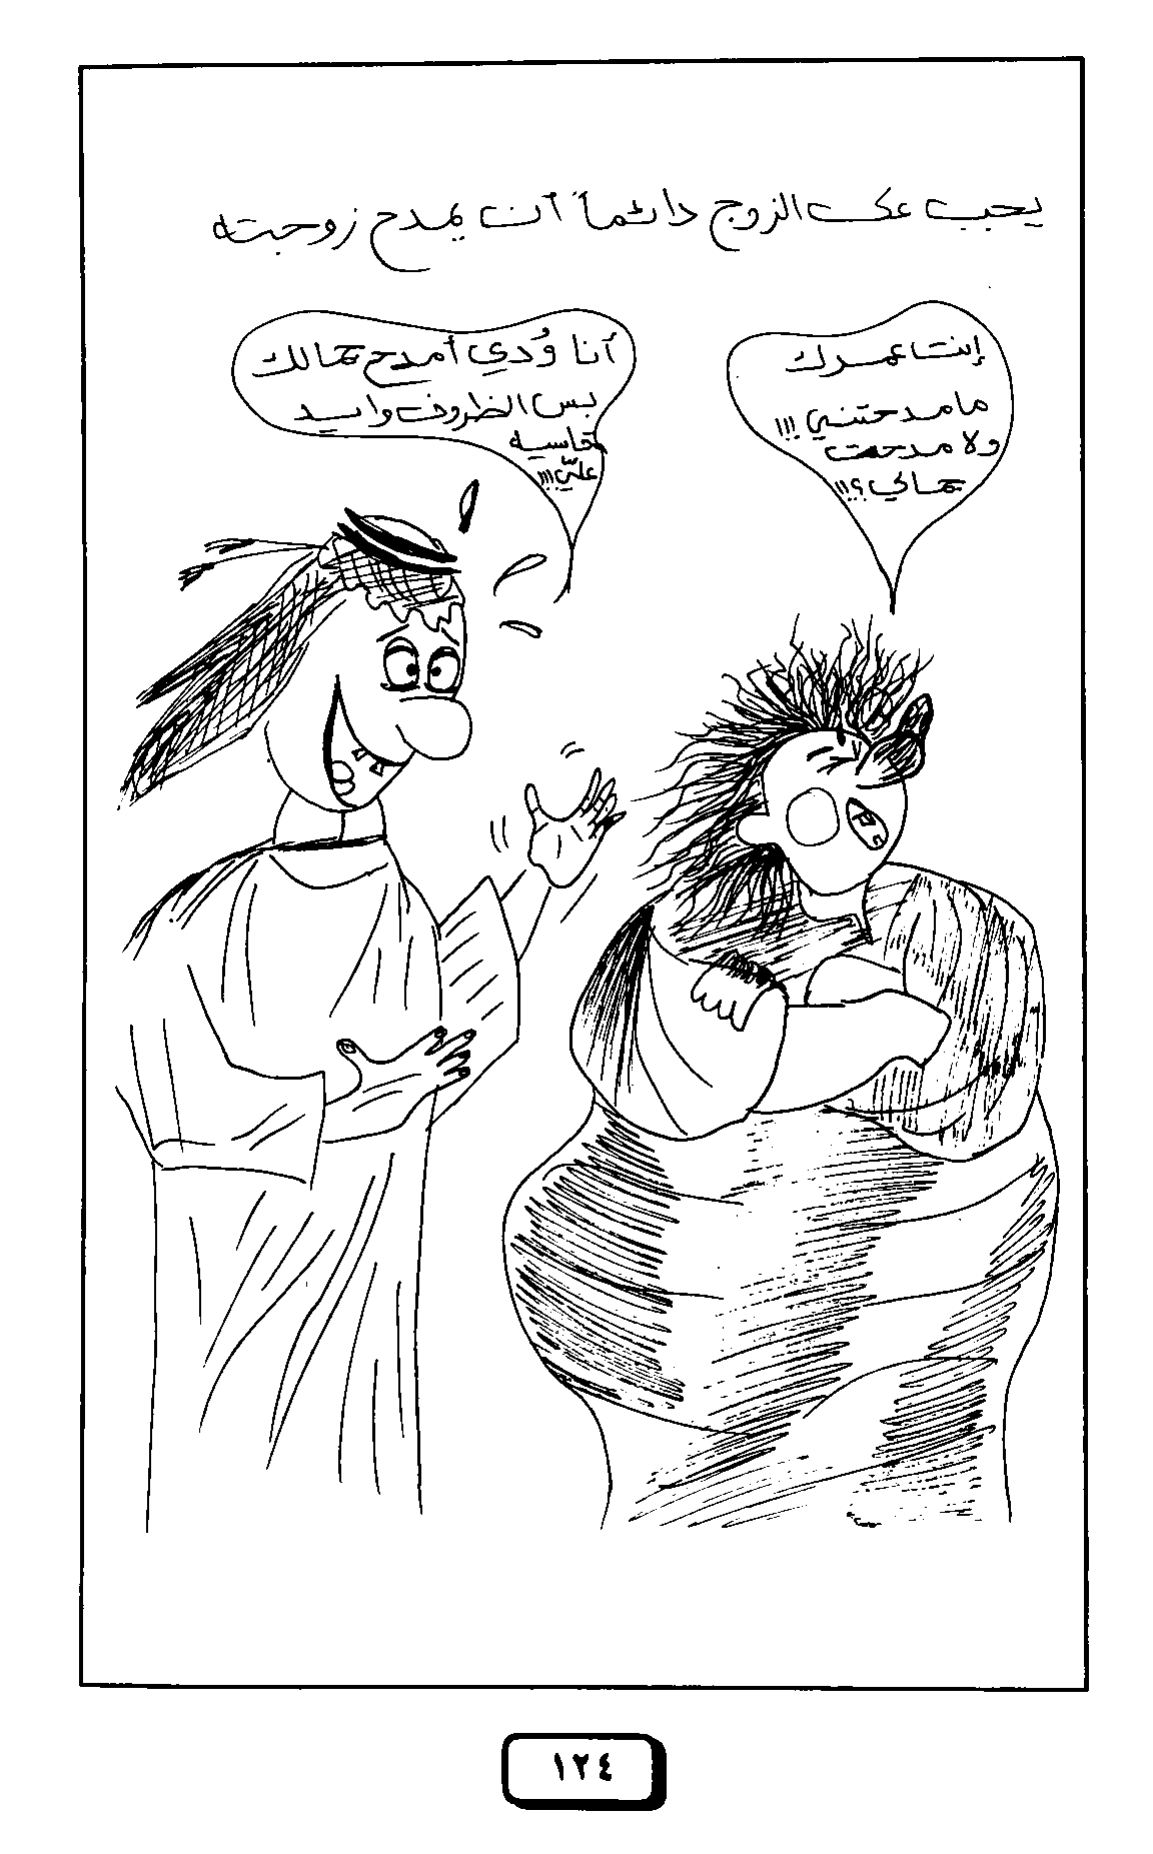 يجب على الزوج دائماً أن يمدح زوجته
إنت عمرك
ما مدحتني !!!
ولا مدحت
جمالي ؟!!
أنا وُدي أمدح جمالك
بس الظروف وايد
قاسيه
عليّ !!!
١٢٤